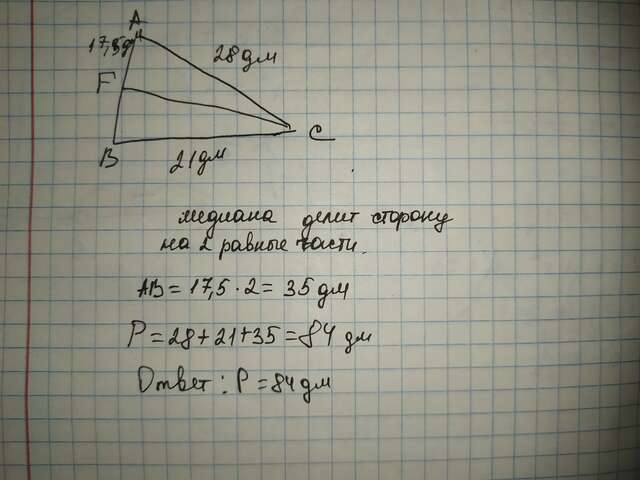 A
17,5дм
28дм
F
C
B
21дм
медиана делит сторону
на 2 равные части.
AB = 17,5 · 2 = 35 дм
P = 28 + 21 + 35 = 84 дм
Ответ: P = 84 дм